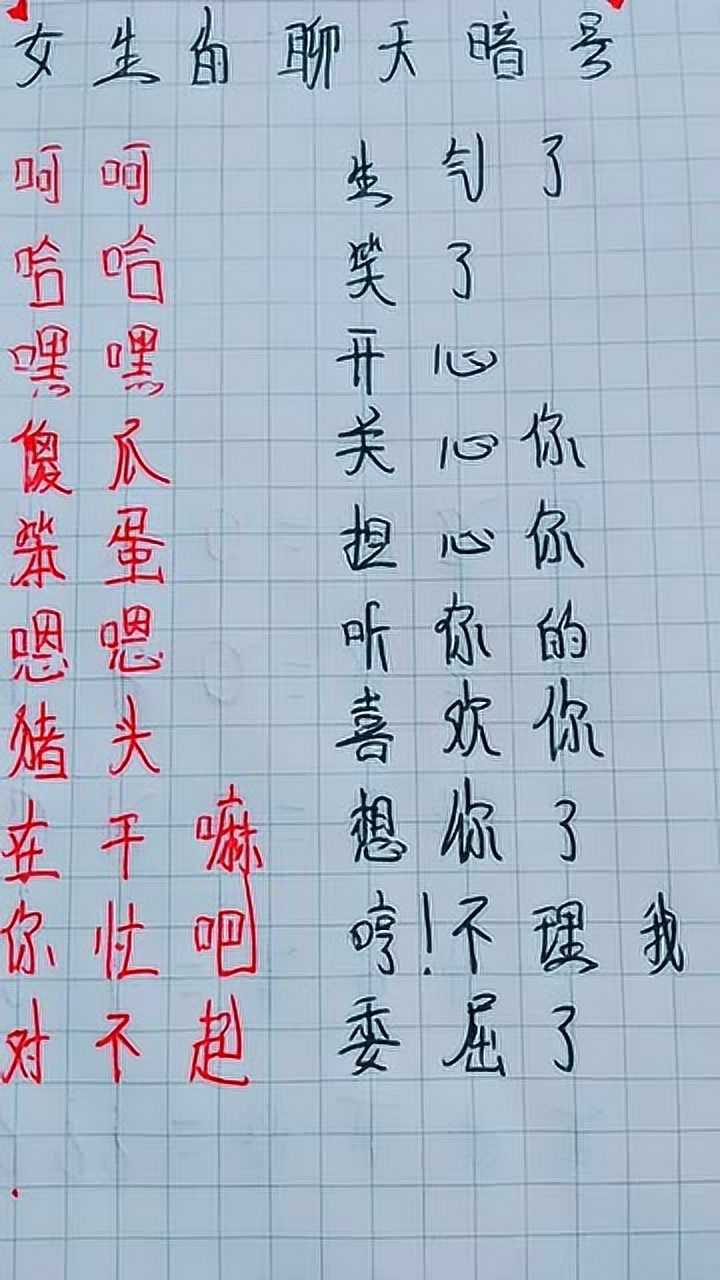 女生的聊天暗号
呵呵 生气了
哈哈 笑了
嘿嘿 开心
傻瓜 关心你
笨蛋 担心你
嗯嗯 听你的
猪头 喜欢你
在干嘛 想你了
你忙吧 哼!不理我
对不起 委屈了